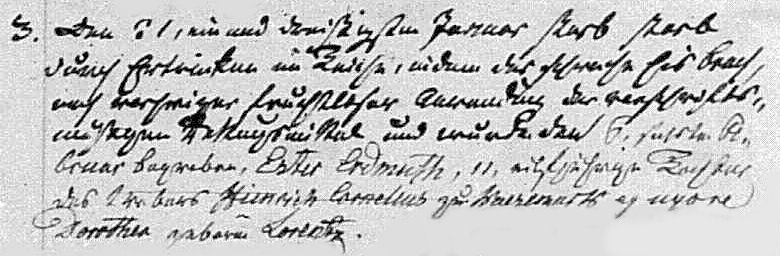 3. Den 31, ein und dreißigsten Januar starb starb
durch Ertrinken im Teiche, indem das schwache Eis brach,
nach vorheriger fruchtloser Anwendung der vorschrifts-
mäßigen Rettungsmittel und wurde den 6, sechsten Fe-
bruar begraben, Ester Erdmuth, 11, eilfjährige Tochter
des Webers Hinrich Cornelius zu et uxore
Dorothea geborne Lorentz.